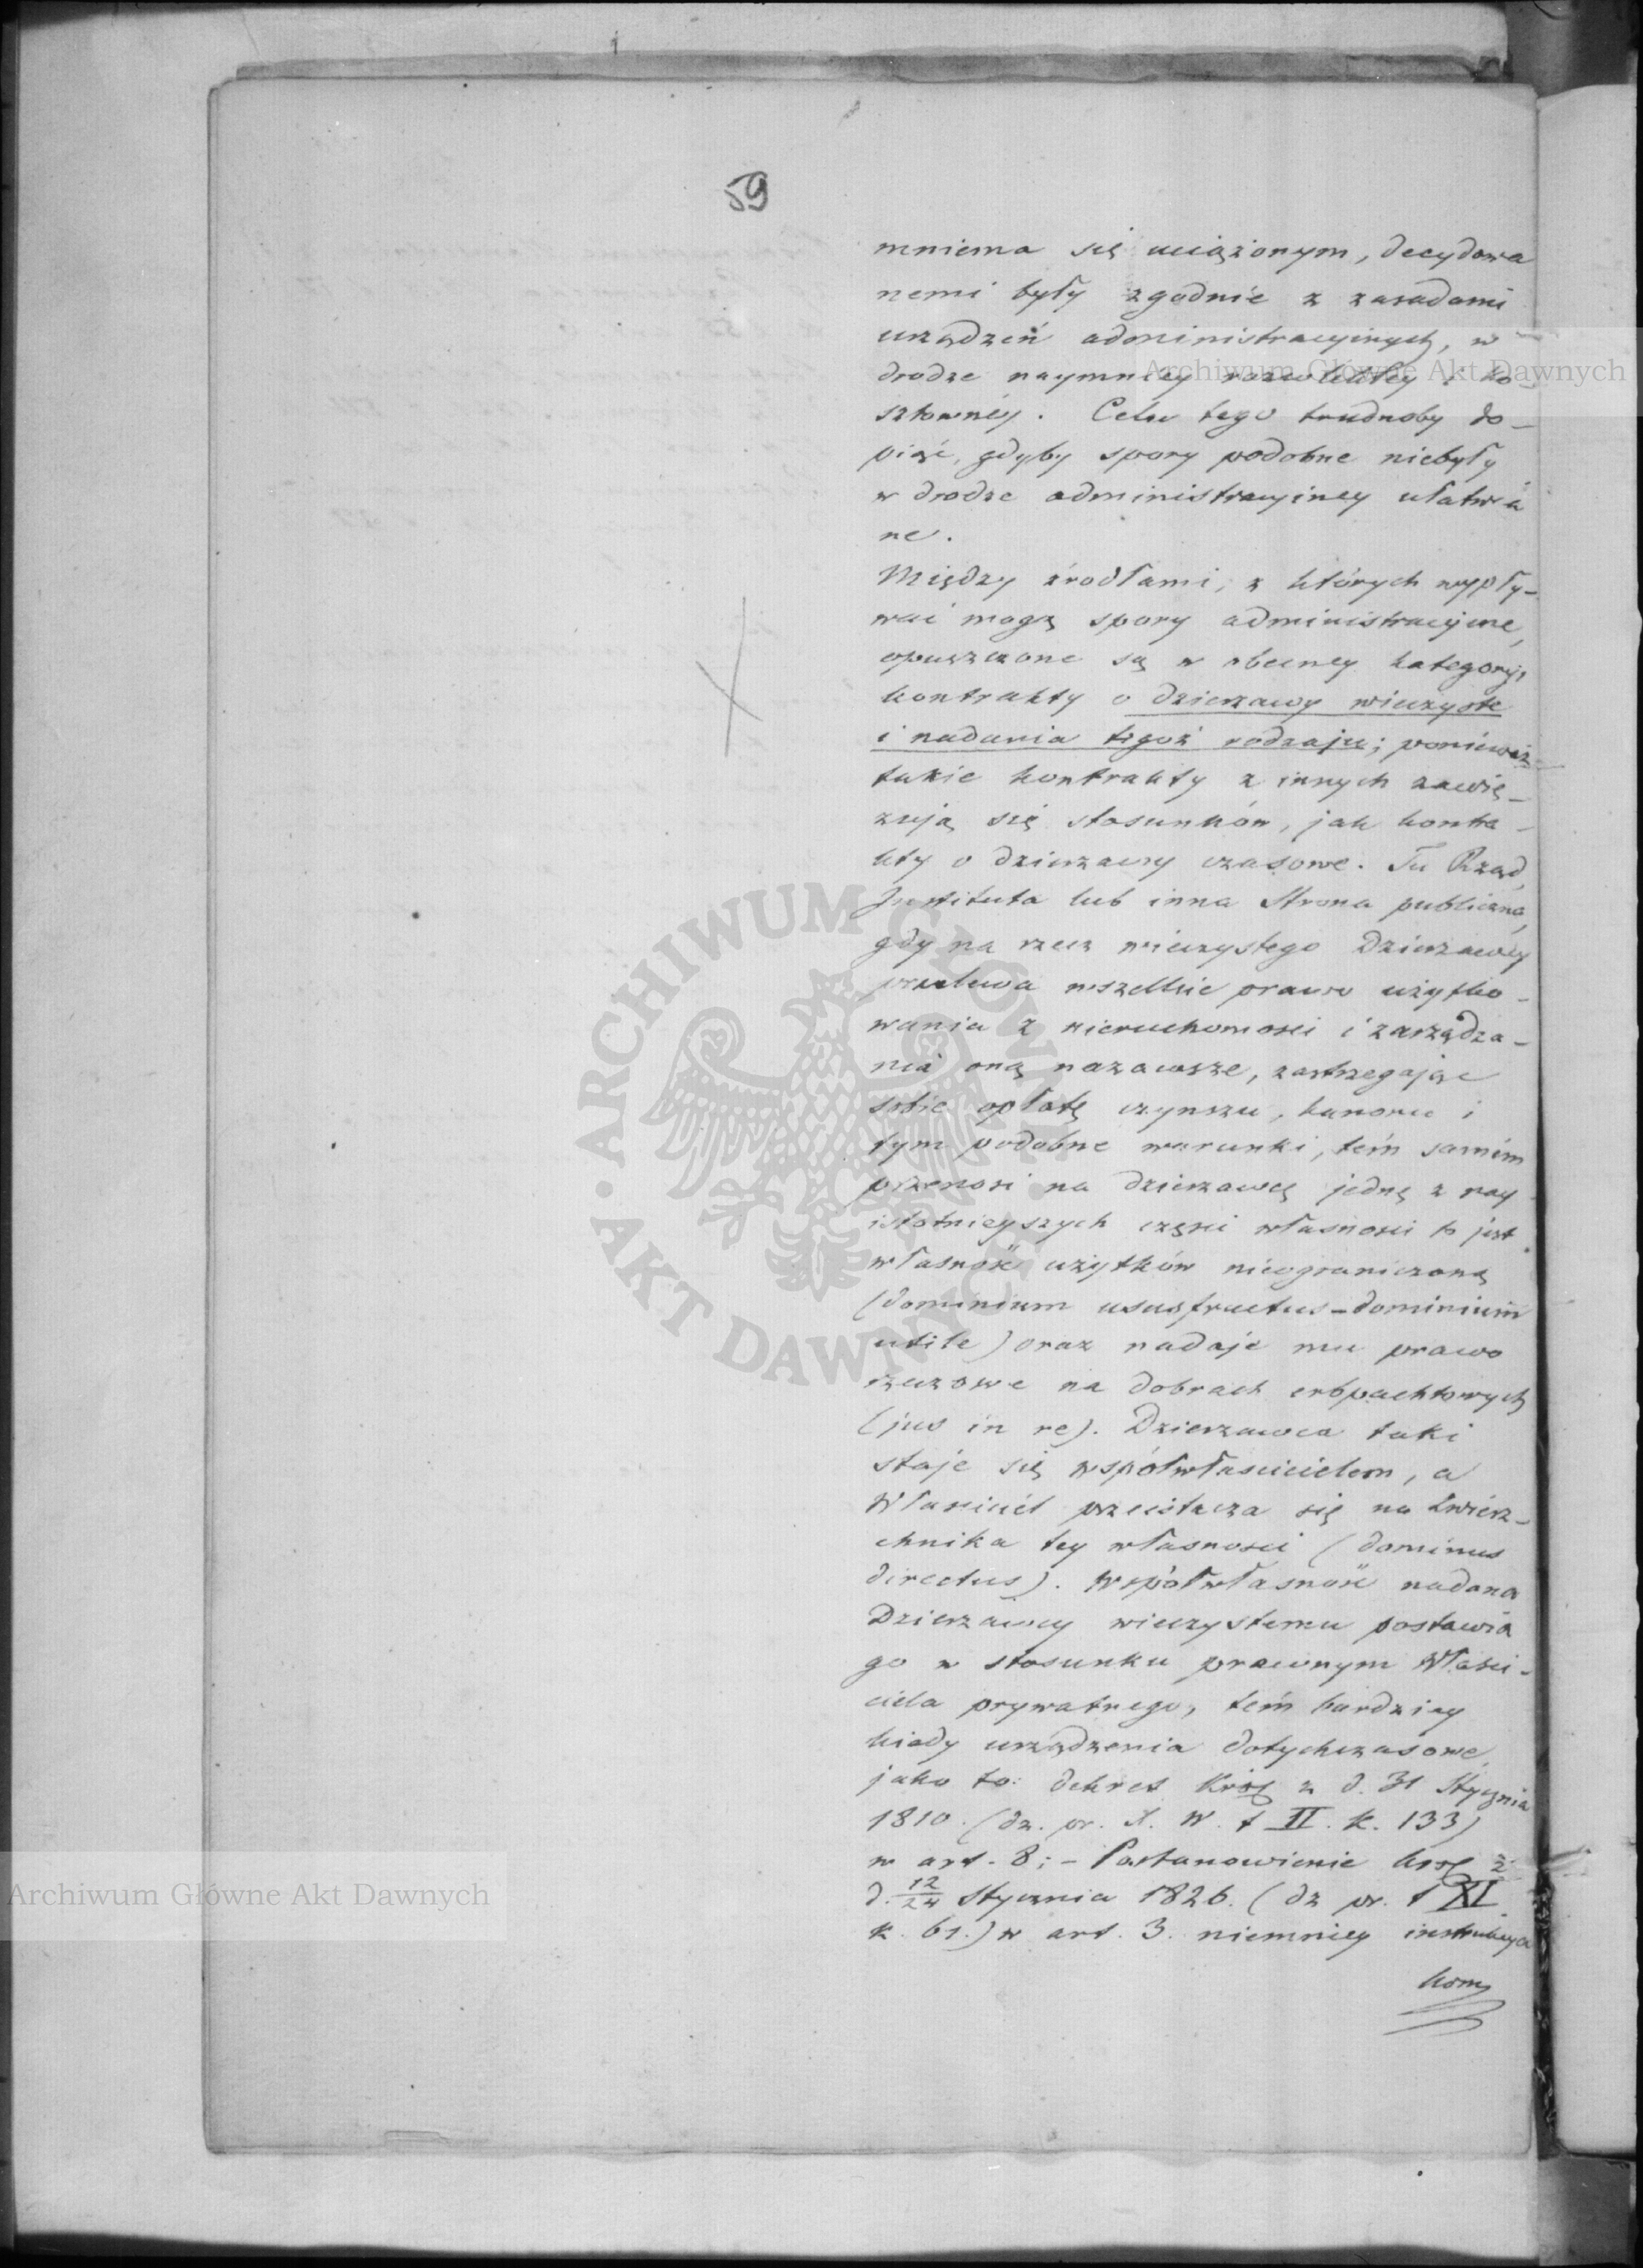 59
mniema się uciążonym, decydowa
nemi były zgodnie z zasadami
urządzeń administracyinych, w
drodze naymniey rozwlekłey i ko-
sztowney. Celu tego trudnoby do-
piąć, gdyby spory podobne niebyły
w drodze administracyiney ułatwia
ne.
Między źrodłami, z których wypły-
wać mogą spory administracyine,
opuszczone są w obecney kategoryi,
kontrakty o dzierzawy wieczyste
i nadania tegoż rodzaju; ponieważ
takie kontrakty z innych zawię-
zują się stosunków, jak kontra-
kty o dzierzawy czasowe. Tu Rząd,
Instituta lub inna Strona publiczna,
gdy na rzecz wieczystego Dzierzawcy
przelewa wszelkie prawo użytko-
wania z nieruchomosci i zarządza-
nia oną nazawsze, zastrzegając
sobie opłatę czynszu, kanonu i
tym podobne warunki, tém samém
przenosi na dzierzawcę jedną z nay
istotnieyszych części własnosci to jest
własność użytków nieograniczoną
(dominium ususfructus-dominium
utile) oraz nadaje mu prawo
rzeczowe na dobrach erbpachtowych
(jus in re). Dzierzawca taki
staje się współwłascicielem, a
Właściciel przeistacza się na Zwierz-
chnika tey własnosci (dominus
directus). Współwłasność nadana
Dzierzawcy wieczystemu postawia
go w stosunku prawnym Właści-
ciela prywatnego, tém bardziey
kiedy urządzenia dotychczasowe,
jako to: dekret Król z d. 31 Stycznia
1810. (dz. pr. X. W. t II. k. 133)
w art. 8; - Postanowienie Król z
d. 12/24 Stycznia 1826. (dz pr. t XI.
k. 61.) w art. 3. niemniey instrukcya
Kom
Archiwum Główne Akt Dawnych
Archiwum Główne Akt Dawnych
ARCHIWUM GŁÓWNE • AKT DAWNYCH •